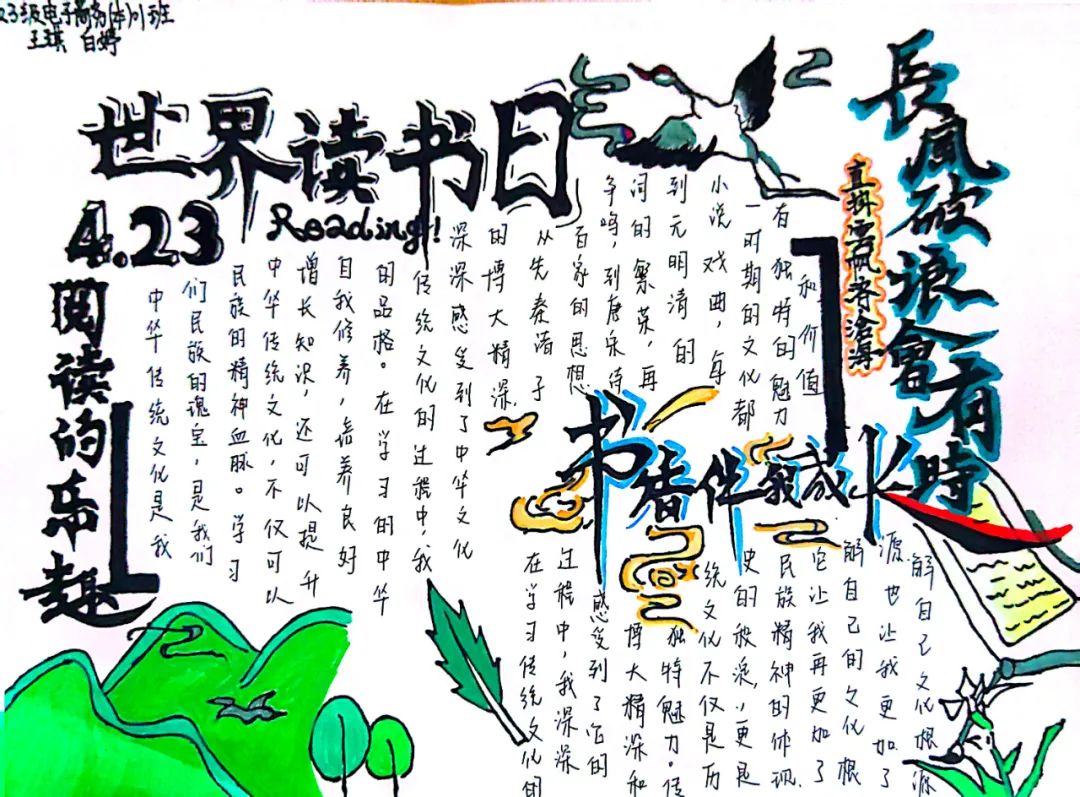 23级电子商务(本)01班
王琪 白婷
世界读书日
4.23 Reading!
阅读的乐趣
長風破浪會有時
直挂雲帆济滄海
中华传统文化是我
们民族的瑰宝，是我们
民族的精神血脉。学习
中华传统文化，不仅可以
增长知识，还可以提升
自我修养，培养良好
的品格。在学习的中华
传统文化的过程中，我
深深感受到了中华文化
的博大精深
从先秦诸子
百家的思想
争鸣，到唐宋诗
词的繁荣，再
到元明清的
小说戏曲，每
一时期的文化都
有独特的魅力
和价值
书香伴我成长
在学习传统文化的
过程中，我深深
感受到了它的
博大精深和
独特魅力。传
统文化不仅是历
史的积淀，更是
民族精神的体现
它让我再更加了
解自己的文化根
源也让我更加了
解自己文化根源